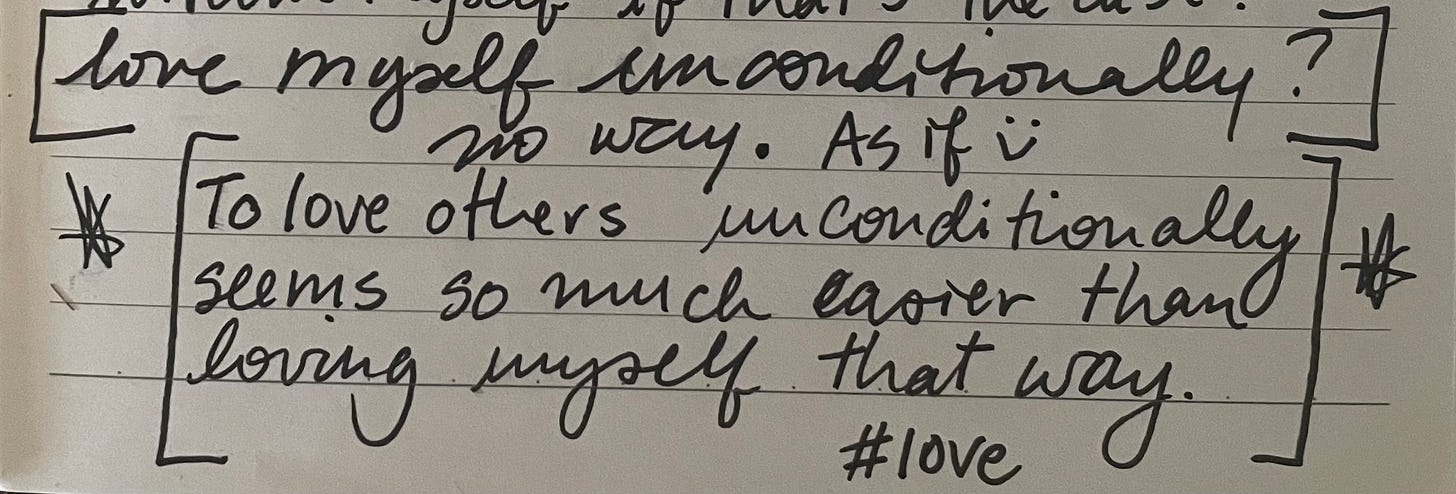 myself if that's the
[love myself unconditionally?]
no way. As if ü
[To love others unconditionally
seems so much easier than
loving myself that way.]
#love